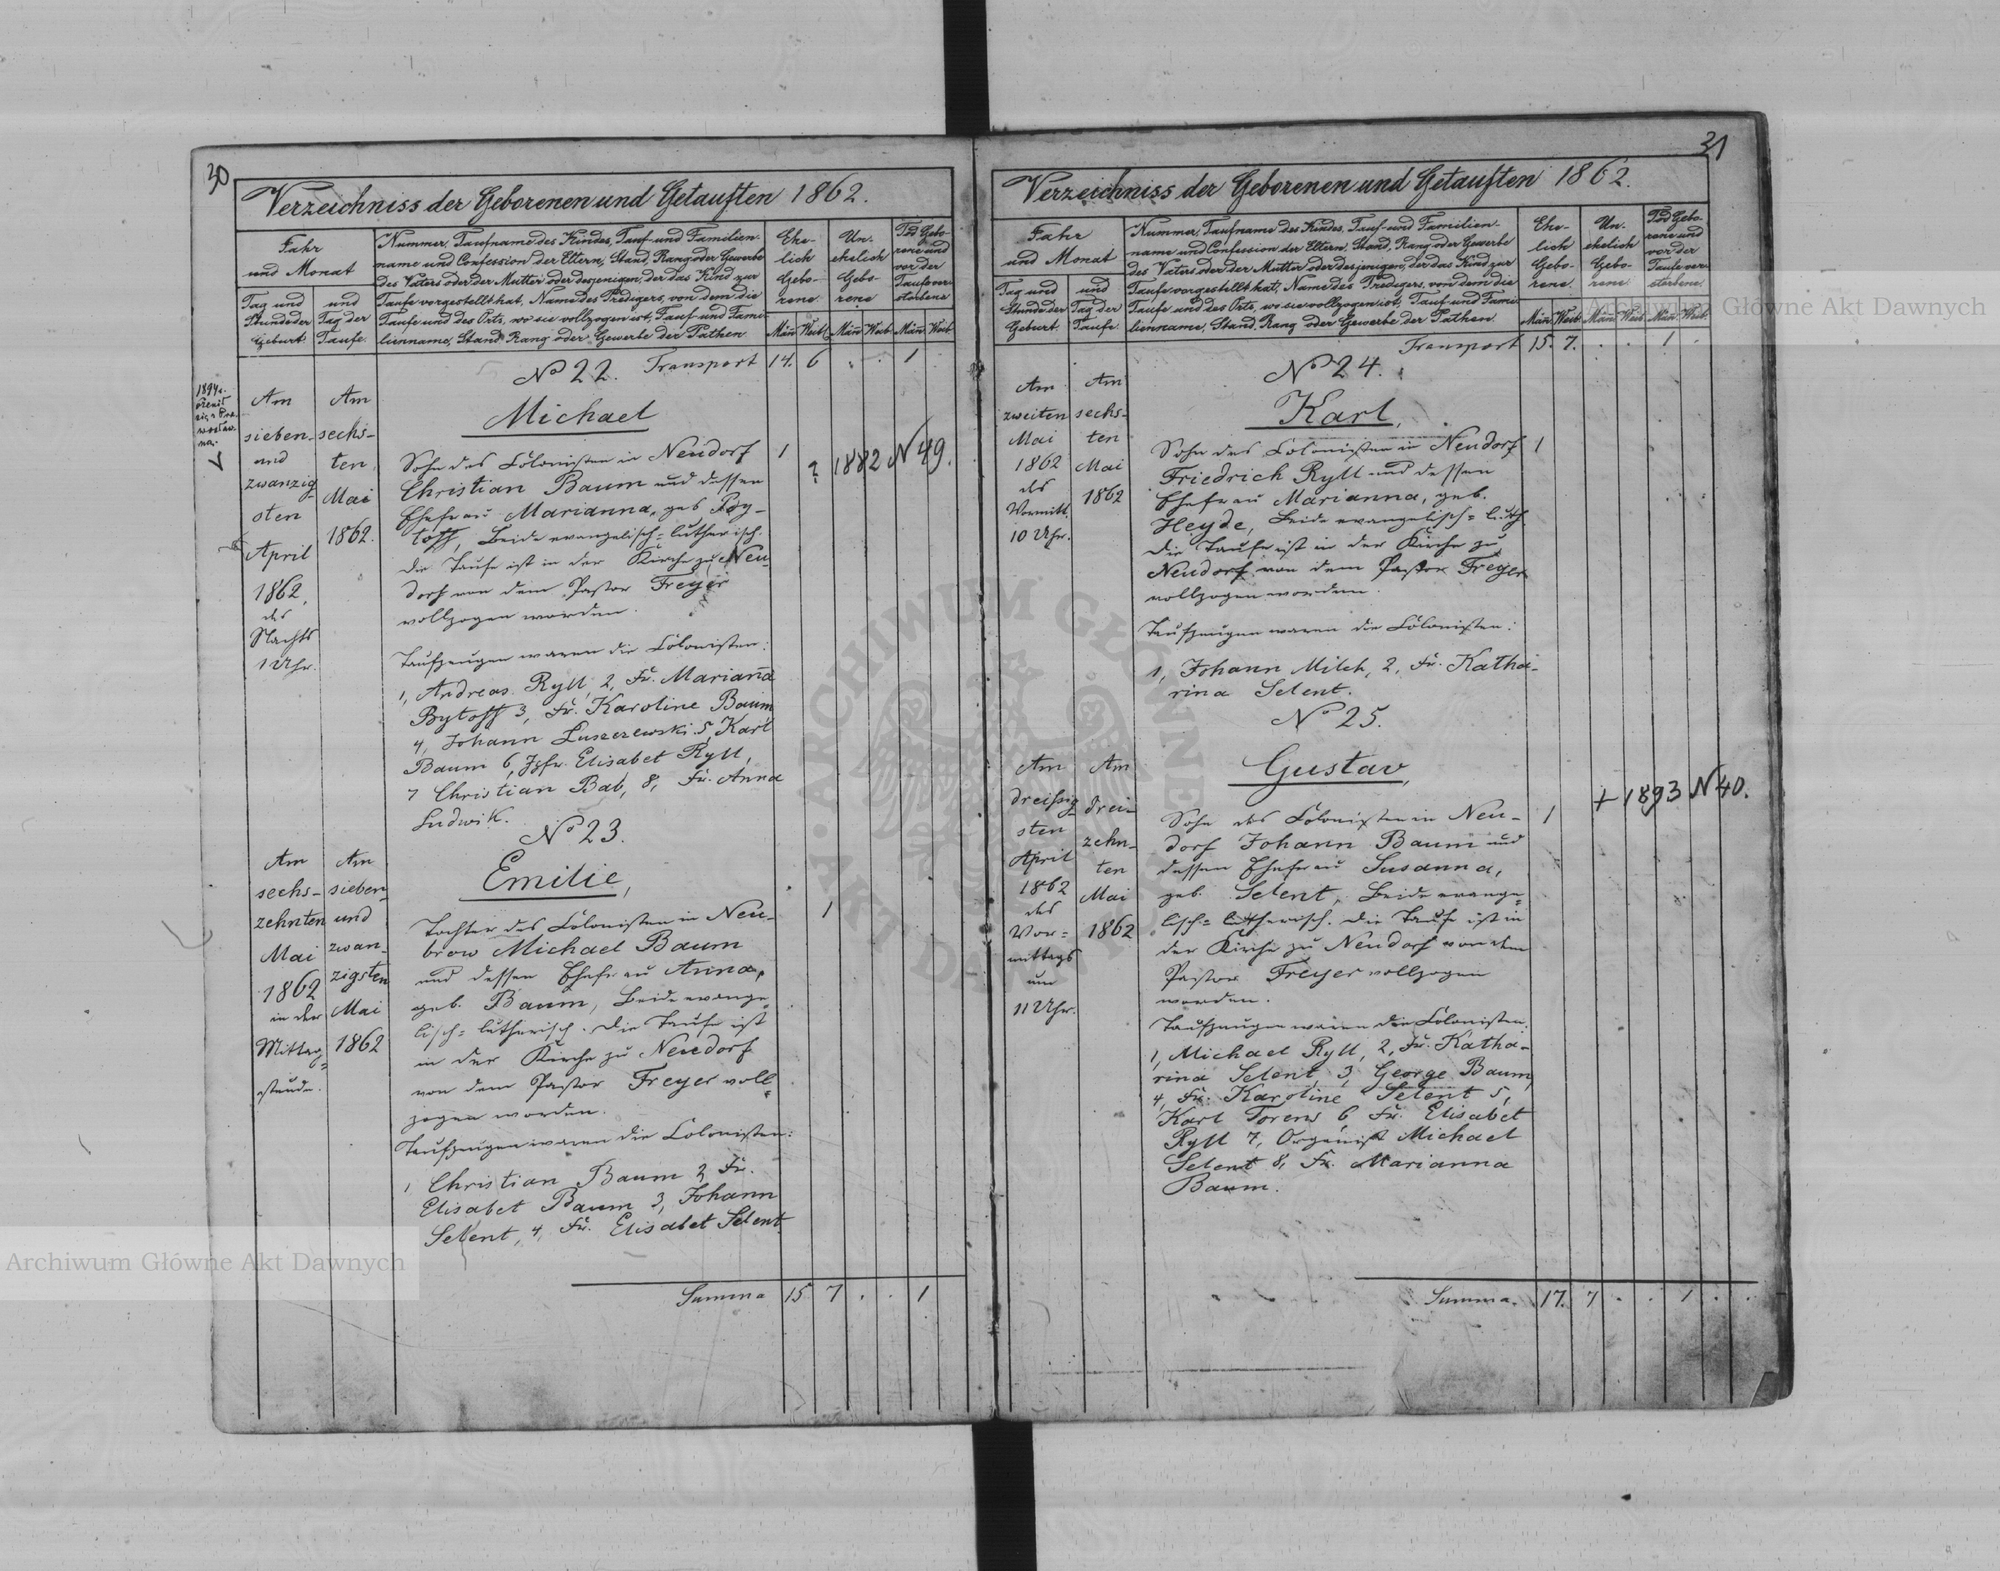 30
Verzeichniss der Geborenen und Getauften 1862.
Jahr
und Monat
Tag und
Stunde der
Geburt.
und
Tag der
Taufe.
Nummer, Taufname des Kindes, Tauf- und Familien-
name und Confession der Eltern, Stand, Rang oder Gewerbe
des Vaters oder der Mutter oder desjenigen, der das Kind zur
Taufe vorgestellt hat, Name des Predigers, von dem die
Taufe und des Orts, wo sie vollzogen ist, Tauf- und Fami-
lienname, Stand, Rang oder Gewerbe der Pathen
Ehe-
lich
Gebo-
rene
Un-
ehelich
Gebo-
rene
Tod Gebo-
rene und
vor der
Taufe ver-
storbene
Män. Weib. Män. Weib. Män. Weib.
Transport 14. 6 . . 1
No 22.
1894 r.
ożenił
się z Pra-
wosław-
na.
Am
sieben-
und
zwanzig-
sten
April
1862,
des
Nachts
1 Uhr.
Am
sechs-
ten
Mai
1862.
Michael
Sohn des Colonisten in Neudorf 1
? 1882 N 49.
Christian Baum und dessen
Ehefrau Marianna, geb. Ryy-
toff, Beide evangelisch-lutherisch.
Die Taufe ist in der Kirche zu Neu-
dorf von dem Pastor Freyer
vollzogen worden.
Taufzeugen waren die Colonisten:
1, Andreas Ryll, 2, Fr. Marianna
Bytoff 3, Fr. Karoline Baum
4, Johann Luszczewski 5, Karl
Baum 6, Jgfr. Elisabet Ryll,
7 Christian Bab, 8, Fr. Anna
Ludwik.
No 23.
Am
sechs-
zehnten
Mai
1862
in der
Mittag-
stunde.
Am
sieben-
und
zwan-
zigsten
Mai
1862
Emilie,
Tochter des Colonisten in Neu- 1
brow Michael Baum
und dessen Ehefrau Anna,
geb. Baum, Beide evange-
lisch-lutherisch. Die Taufe ist
in der Kirche zu Neudorf
von dem Pastor Freyer voll-
zogen worden.
Taufzeugen waren die Colonisten:
1 Christian Baum 2, Fr.
Elisabet Baum 3, Johann
Selent, 4, Fr. Elisabet Selent.
Summa 15 7 . . 1
31
Verzeichniss der Geborenen und Getauften 1862.
Jahr
und Monat
Tag und
Stunde der
Geburt
und
Tag der
Taufe.
Nummer, Taufname des Kindes, Tauf- und Familien-
name und Confession der Eltern, Stand, Rang oder Gewerbe
des Vaters oder der Mutter oder desjenigen, der das Kind zur
Taufe vorgestellt hat, Name des Predigers, von dem die
Taufe und des Orts, wo sie vollzogen ist, Tauf- und Fami-
lienname, Stand, Rang oder Gewerbe der Pathen.
Ehe-
lich
Gebo-
rene.
Un-
ehelich
Gebo-
rene
Tod Gebo-
rene und
vor der
Taufe ver-
storbene.
Män. Weib. Män. Weib. Män. Weib.
Transport 15. 7. . . 1 .
No 24.
Am
zweiten
Mai
1862
des
Vormitt.
10 Uhr.
Am
sechs-
ten
Mai
1862
Karl,
Sohn des Colonisten in Neudorf 1
Friedrich Ryll und dessen
Ehefrau Marianna, geb.
Heyde, Beide evangelisch-luth.
Die Taufe ist in der Kirche zu
Neudorf von dem Pastor Freyer
vollzogen worden.
Taufzeugen waren die Colonisten:
1, Johann Milch, 2, Fr. Katha-
rina Selent.
No 25.
Am
dreissig-
sten
April
1862
des
Vor-
mittags
um
11 Uhr.
Am
drei-
zehn-
ten
Mai
1862
Gustav,
+ 1893 N 40.
Sohn des Colonisten in Neu- 1
dorf Johann Baum und
dessen Ehefrau Susanna,
geb. Selent, Beide evange-
lisch-lutherisch. Die Taufe ist in
der Kirche zu Neudorf von dem
Pastor Freyer vollzogen
worden.
Taufzeugen waren die Colonisten.
1, Michael Ryll, 2, Fr. Katha-
rina Selent 3, George Baum,
4, Fr. Karoline Selent 5,
Karl Torenz 6, Fr. Elisabet
Ryll 7, Organist Michael
Selent 8, Fr. Marianna
Baum.
Summa. 17. 7 . . 1 . .
Archiwum Główne Akt Dawnych
Archiwum Główne Akt Dawnych
ARCHIWUM GŁÓWNE AKT DAWNYCH